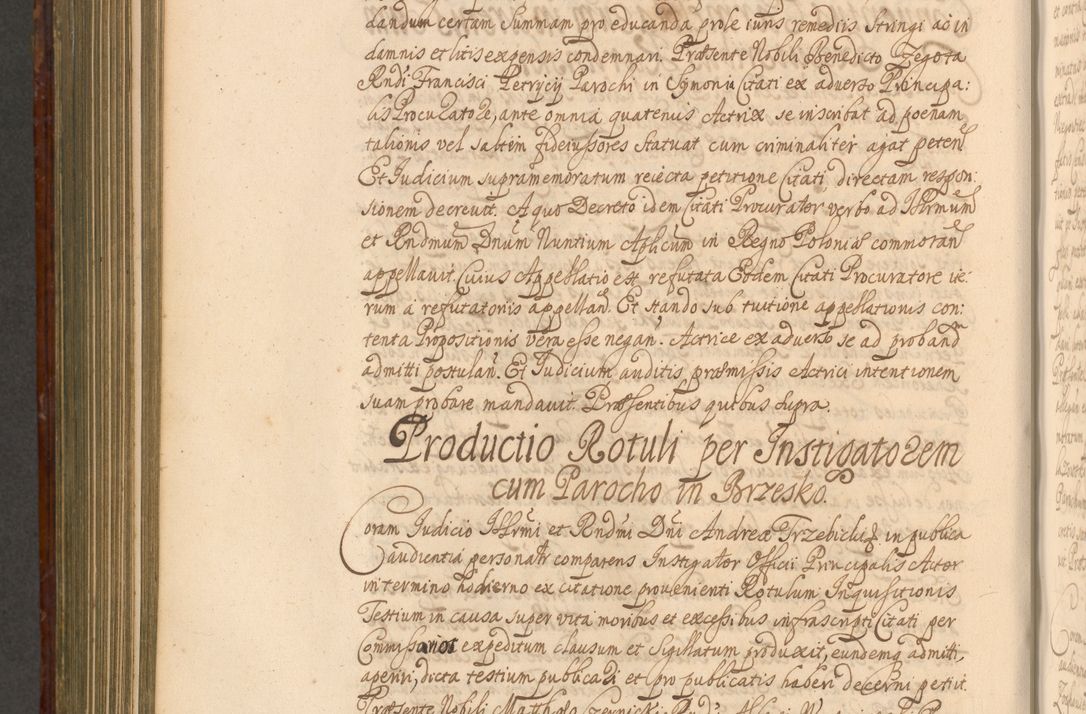 dandum certam Summam pro educanda prole iuris remediis stringi ac in
damnis et litis expensis condemnari. Præsente Nobili Benedicto Zegota
Rndi Francisci Petrycÿ Parochi in Chmonia Citati ex adverso Principa:
lis Procuratore, ante omnia quatenus Actrix se inscribat ad poenam
talionis vel saltem fideiussores statuat cum criminaliter agat peten
Et Iudicium supramemoratum reiecta petitione Citati directam respon:
sionem decrevit. A quo Decreto idem Citati Procurator verbo ad Illrmum
et Rndmum Dnum Nuntium Aplicum in Regno Poloniæ commoran
appellavit. Cuius Appellatio est refutata Eodem Citati Procuratore ite:
rum a refutatoris appellan. Et stando sub tuitione appellationis con:
tenta Propositionis vera esse negan. Actrice ex adverso se ad proband
admitti postulan. Et Iudicium auditis præmissis Actrici intentionem
suam probare mandavit. Præsentibus quibus supra.
Productio Rotuli per Instigatorem
cum Parocho in Brzesko.
Coram Iudicio Illrmi et Rndmi Dni Andreæ Trzebicki in publica
audientia personaltr comparens Instigator Officii Principalis Actor
in termino hodierno ex citatione provenienti Rotulum Inquisitionis
Testium in causa super vita moribus et excessibus infrascripti Citati per
Commissarios expeditum clausum et Sigillatum produxit, eundemq admitti,
aperiri, dicta testium publicari et pro publicatis haberi decerni petiit.
Præsente Nobili Matthæo